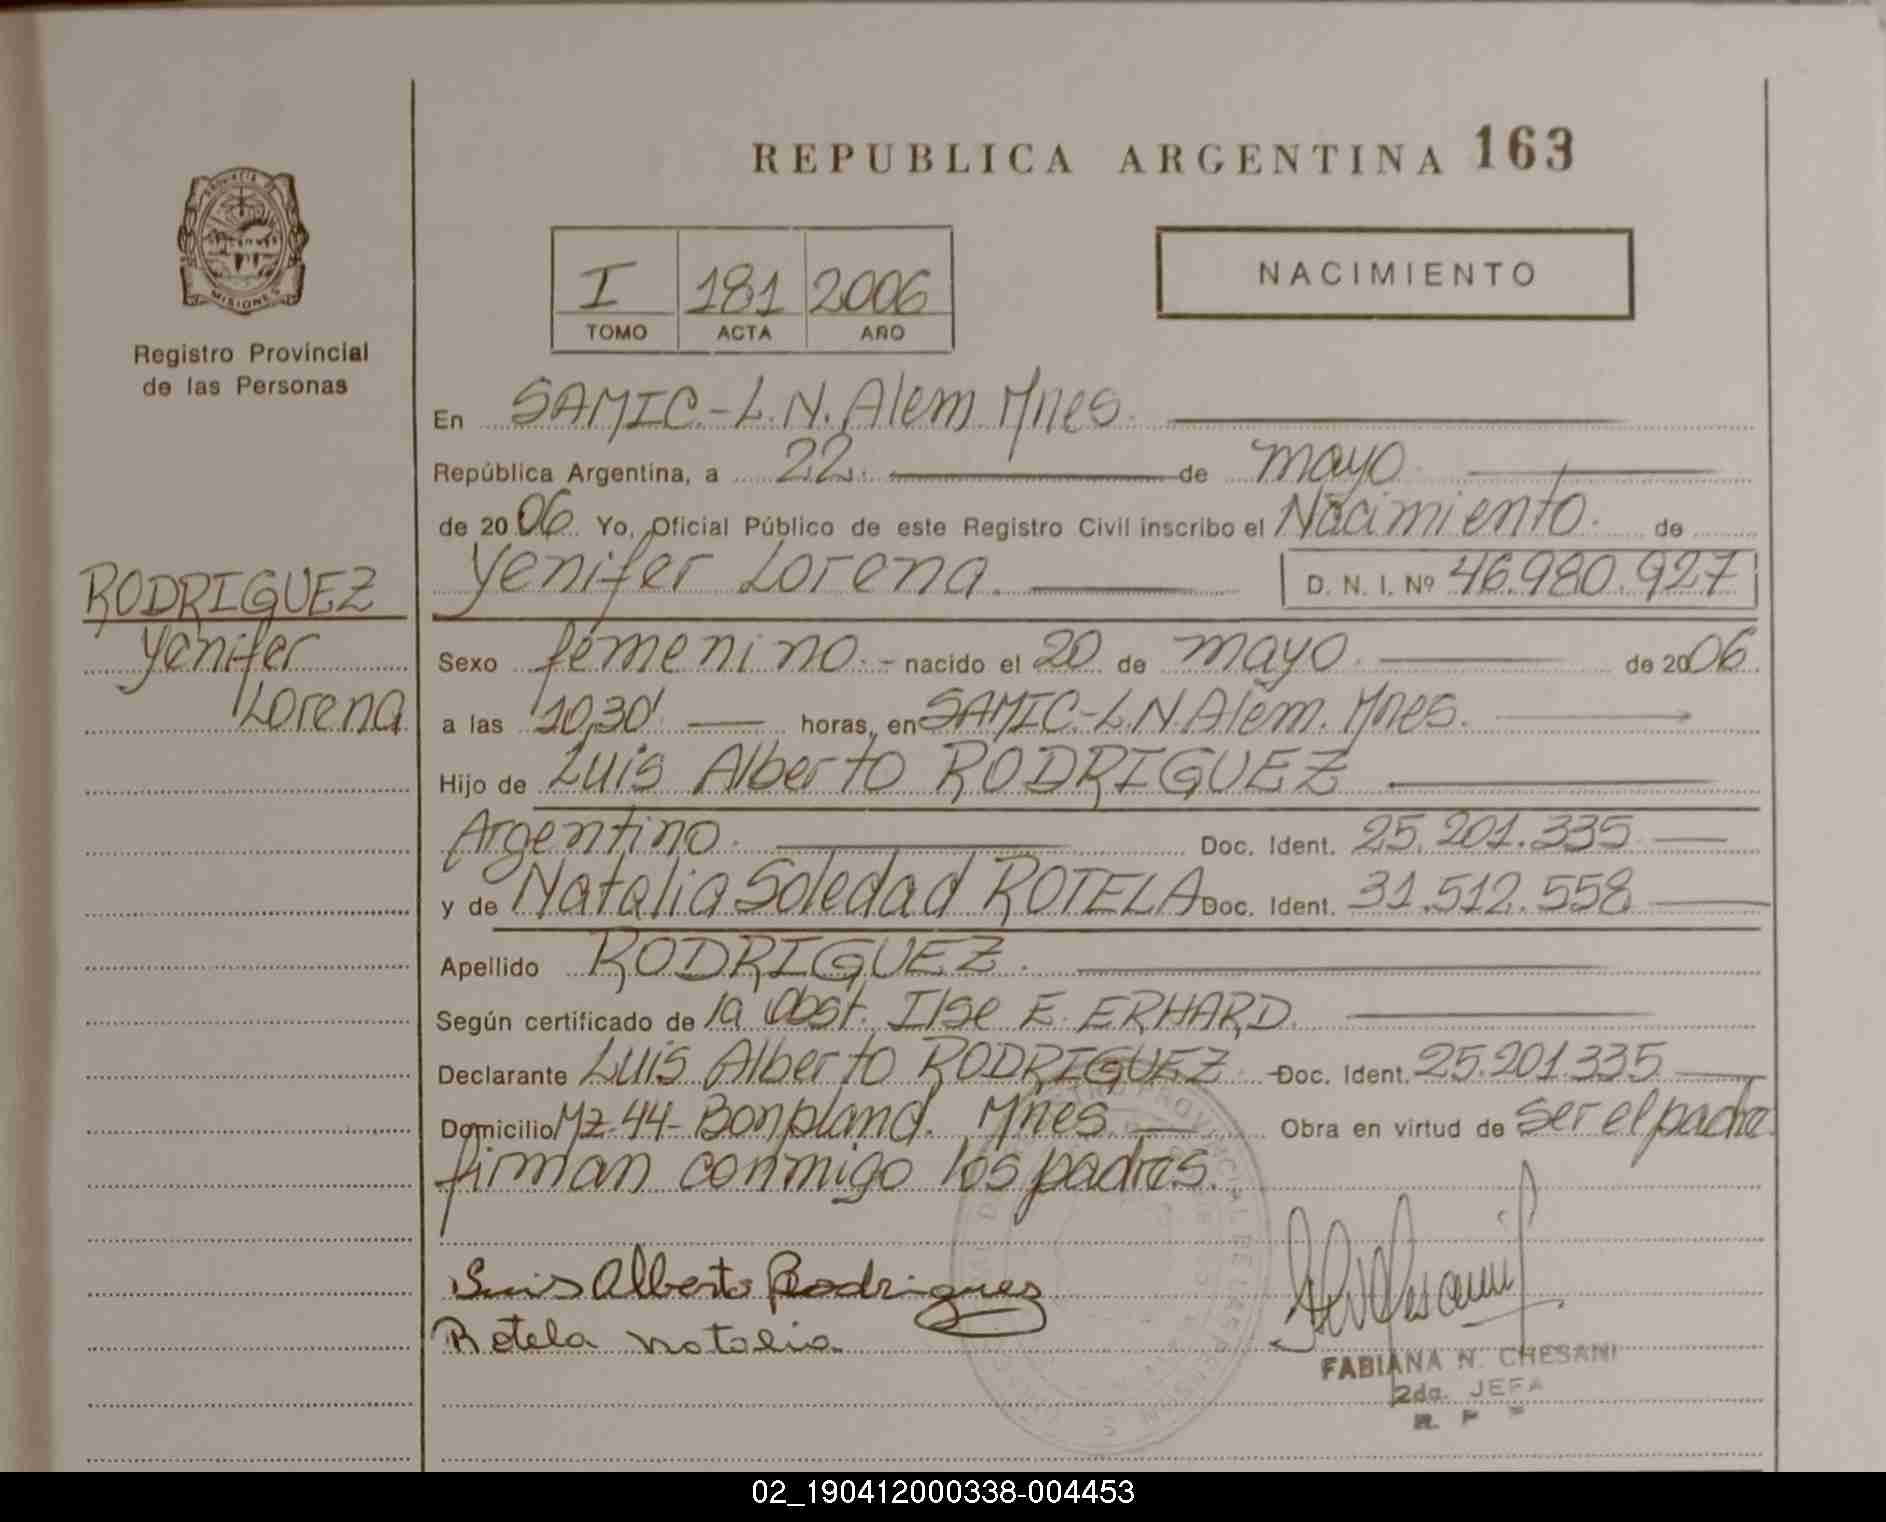 REPUBLICA ARGENTINA 163
PROVINCIA DE
MISIONES
Registro Provincial
de las Personas
I 181 2006
TOMO ACTA AÑO
NACIMIENTO
En SAMIC.-L.N. Alem Mnes.
República Argentina, a 22. de mayo.
de 2006. Yo, Oficial Público de este Registro Civil inscribo el Nacimiento. de
Yenifer Lorena. D. N. I. Nº 46.980.927
RODRIGUEZ
Yenifer
Lorena
Sexo femenino.- nacido el 20 de mayo. de 2006
a las 10,30'. horas, en SAMIC.-L.N. Alem. Mnes.
Hijo de Luis Alberto RODRIGUEZ
Argentino. Doc. Ident. 25.201.335
y de Natalia Soledad ROTELA Doc. Ident. 31.512.558
Apellido RODRIGUEZ.
Según certificado de la Obst. Ilse E. ERHARD.
Declarante Luis Alberto RODRIGUEZ Doc. Ident. 25.201.335
Domicilio Mz-44- Bonpland. Mnes. Obra en virtud de ser el padre.
firman conmigo los padres.
Luis Alberto Rodriguez
Rotela Natalia
FABIANA N. CHESANI
2da. JEFA
R. P
02_190412000338-004453